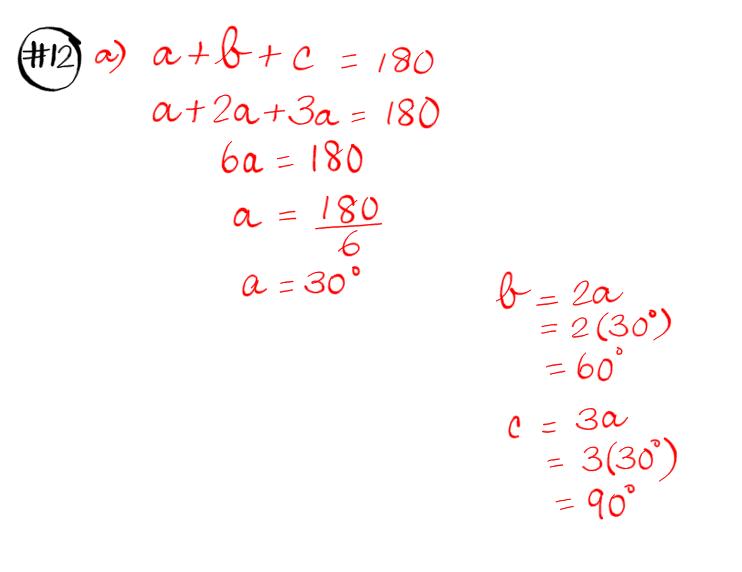 #12 a) a + b + c = 180
a + 2a + 3a = 180
6a = 180
a = 180/6
a = 30°
b = 2a
= 2(30°)
= 60°
c = 3a
= 3(30°)
= 90°